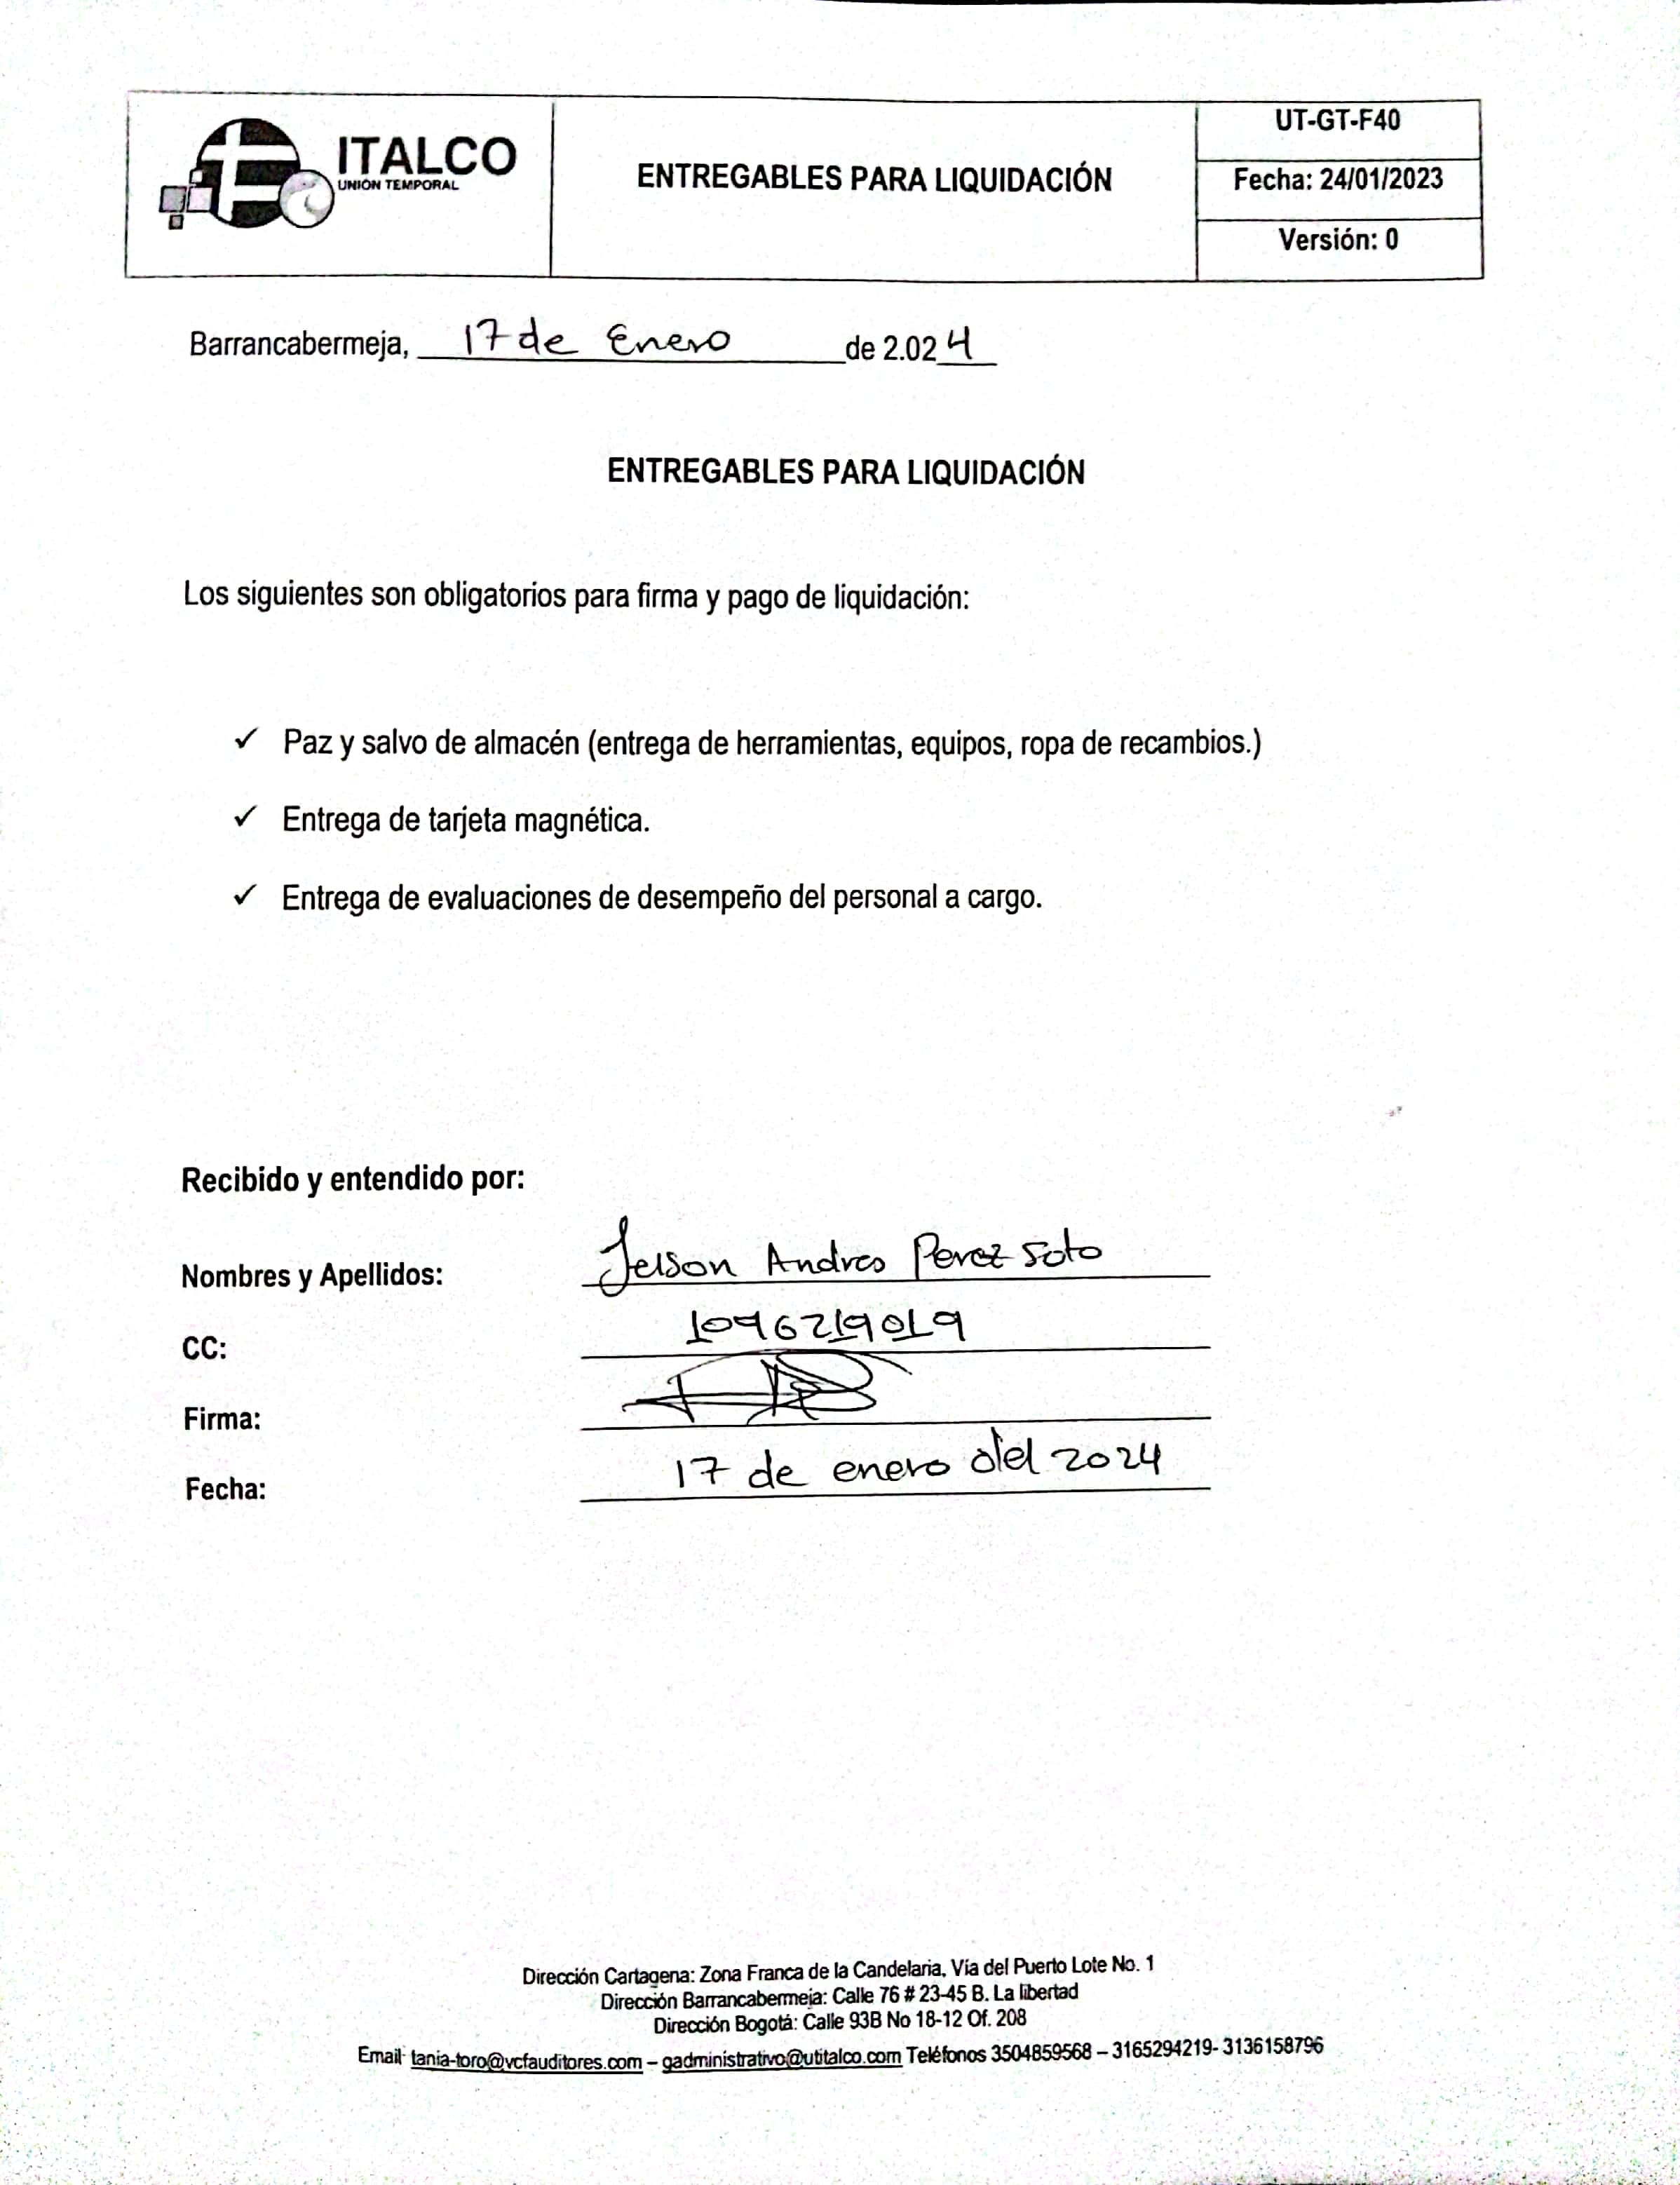 ITALCO
UNIÓN TEMPORAL
ENTREGABLES PARA LIQUIDACIÓN
UT-GT-F40
Fecha: 24/01/2023
Versión: 0
Barrancabermeja, 17 de Enero de 2.024
ENTREGABLES PARA LIQUIDACIÓN
Los siguientes son obligatorios para firma y pago de liquidación:
✓ Paz y salvo de almacén (entrega de herramientas, equipos, ropa de recambios.)
✓ Entrega de tarjeta magnética.
✓ Entrega de evaluaciones de desempeño del personal a cargo.
Recibido y entendido por:
Nombres y Apellidos: Jeison Andres Perez Soto
CC: 1096219019
Firma:
Fecha: 17 de enero del 2024
Dirección Cartagena: Zona Franca de la Candelaria, Vía del Puerto Lote No. 1
Dirección Barrancabermeja: Calle 76 # 23-45 B. La libertad
Dirección Bogotá: Calle 93B No 18-12 Of. 208
Email: tania-toro@vcfauditores.com – gadministrativo@utitalco.com Teléfonos 3504859568 – 3165294219- 3136158796